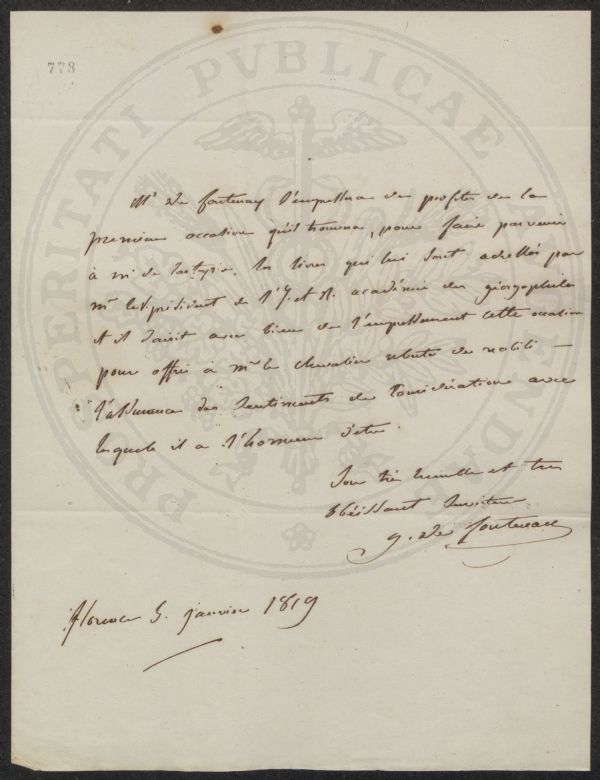 773
PROSPERITATI PVBLICAE AVGENDAE
Mr de fontenay s'empressera de profiter de la
première occasion qu'il trouvera, pour faire parvenir
à mr de les livres qui lui sont adressés par
mr le Vice président de l'I. et R. académie des géorgophiles
et il saisit avec bien de l'empressement cette occasion
pour offrir à mr le chevalier de nobili
l'assurance des sentiments de considération avec
lesquels il a l'honneur d'etre.
Son très humble et tres
obéissant serviteur
g. de fontenay
florence 5. janvier 1819